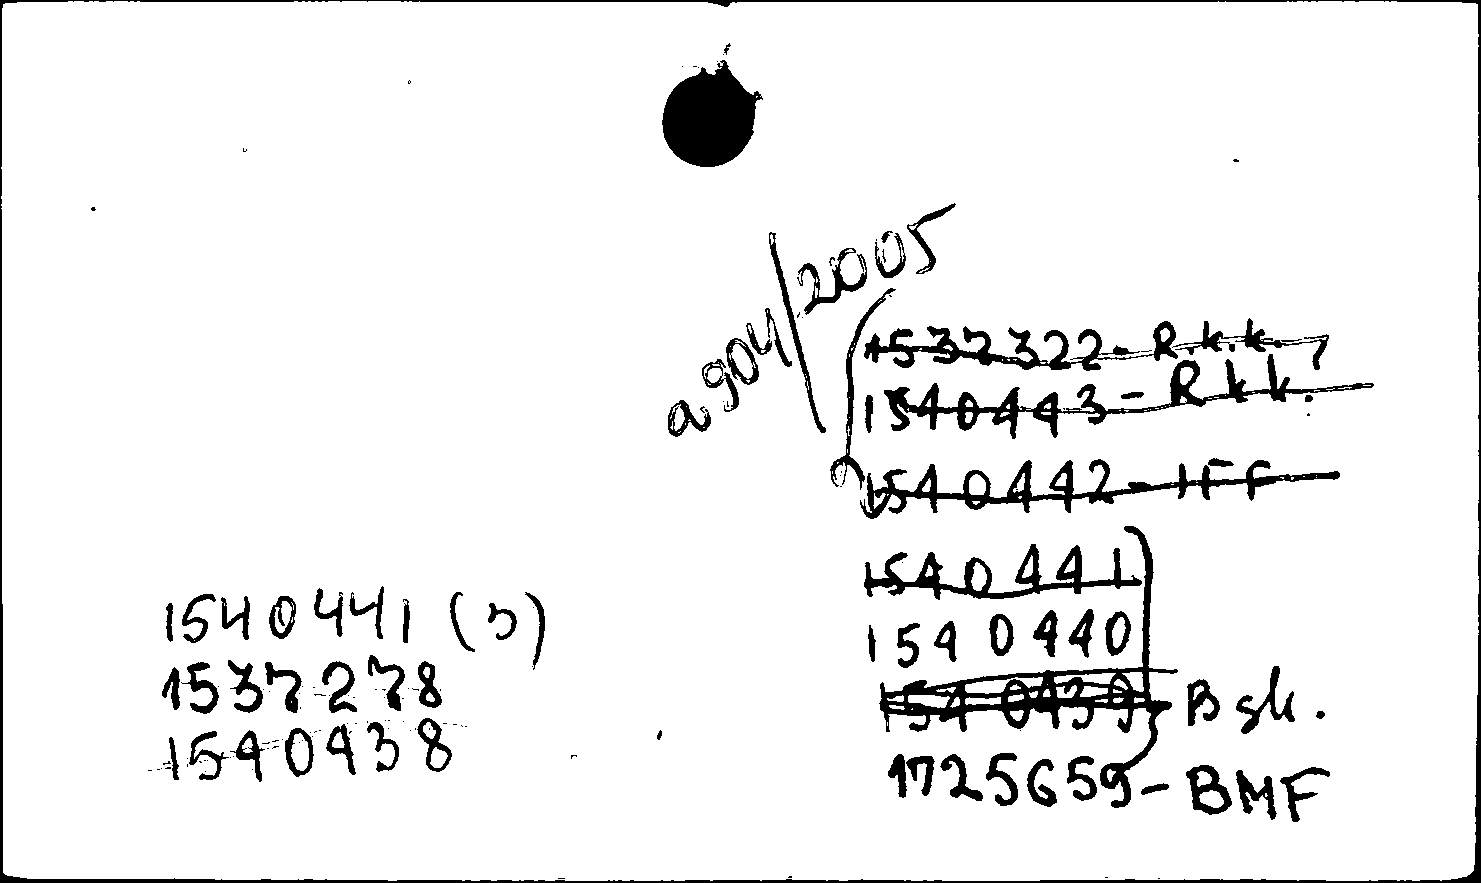 a 904/2005
1537322 - R.k.k.
1540443 - R k k.
1540442 - IFF
1540441
1540440
1540439 - Bgk.
1725659 - BMF
1540441 (5)
1537278
1540438